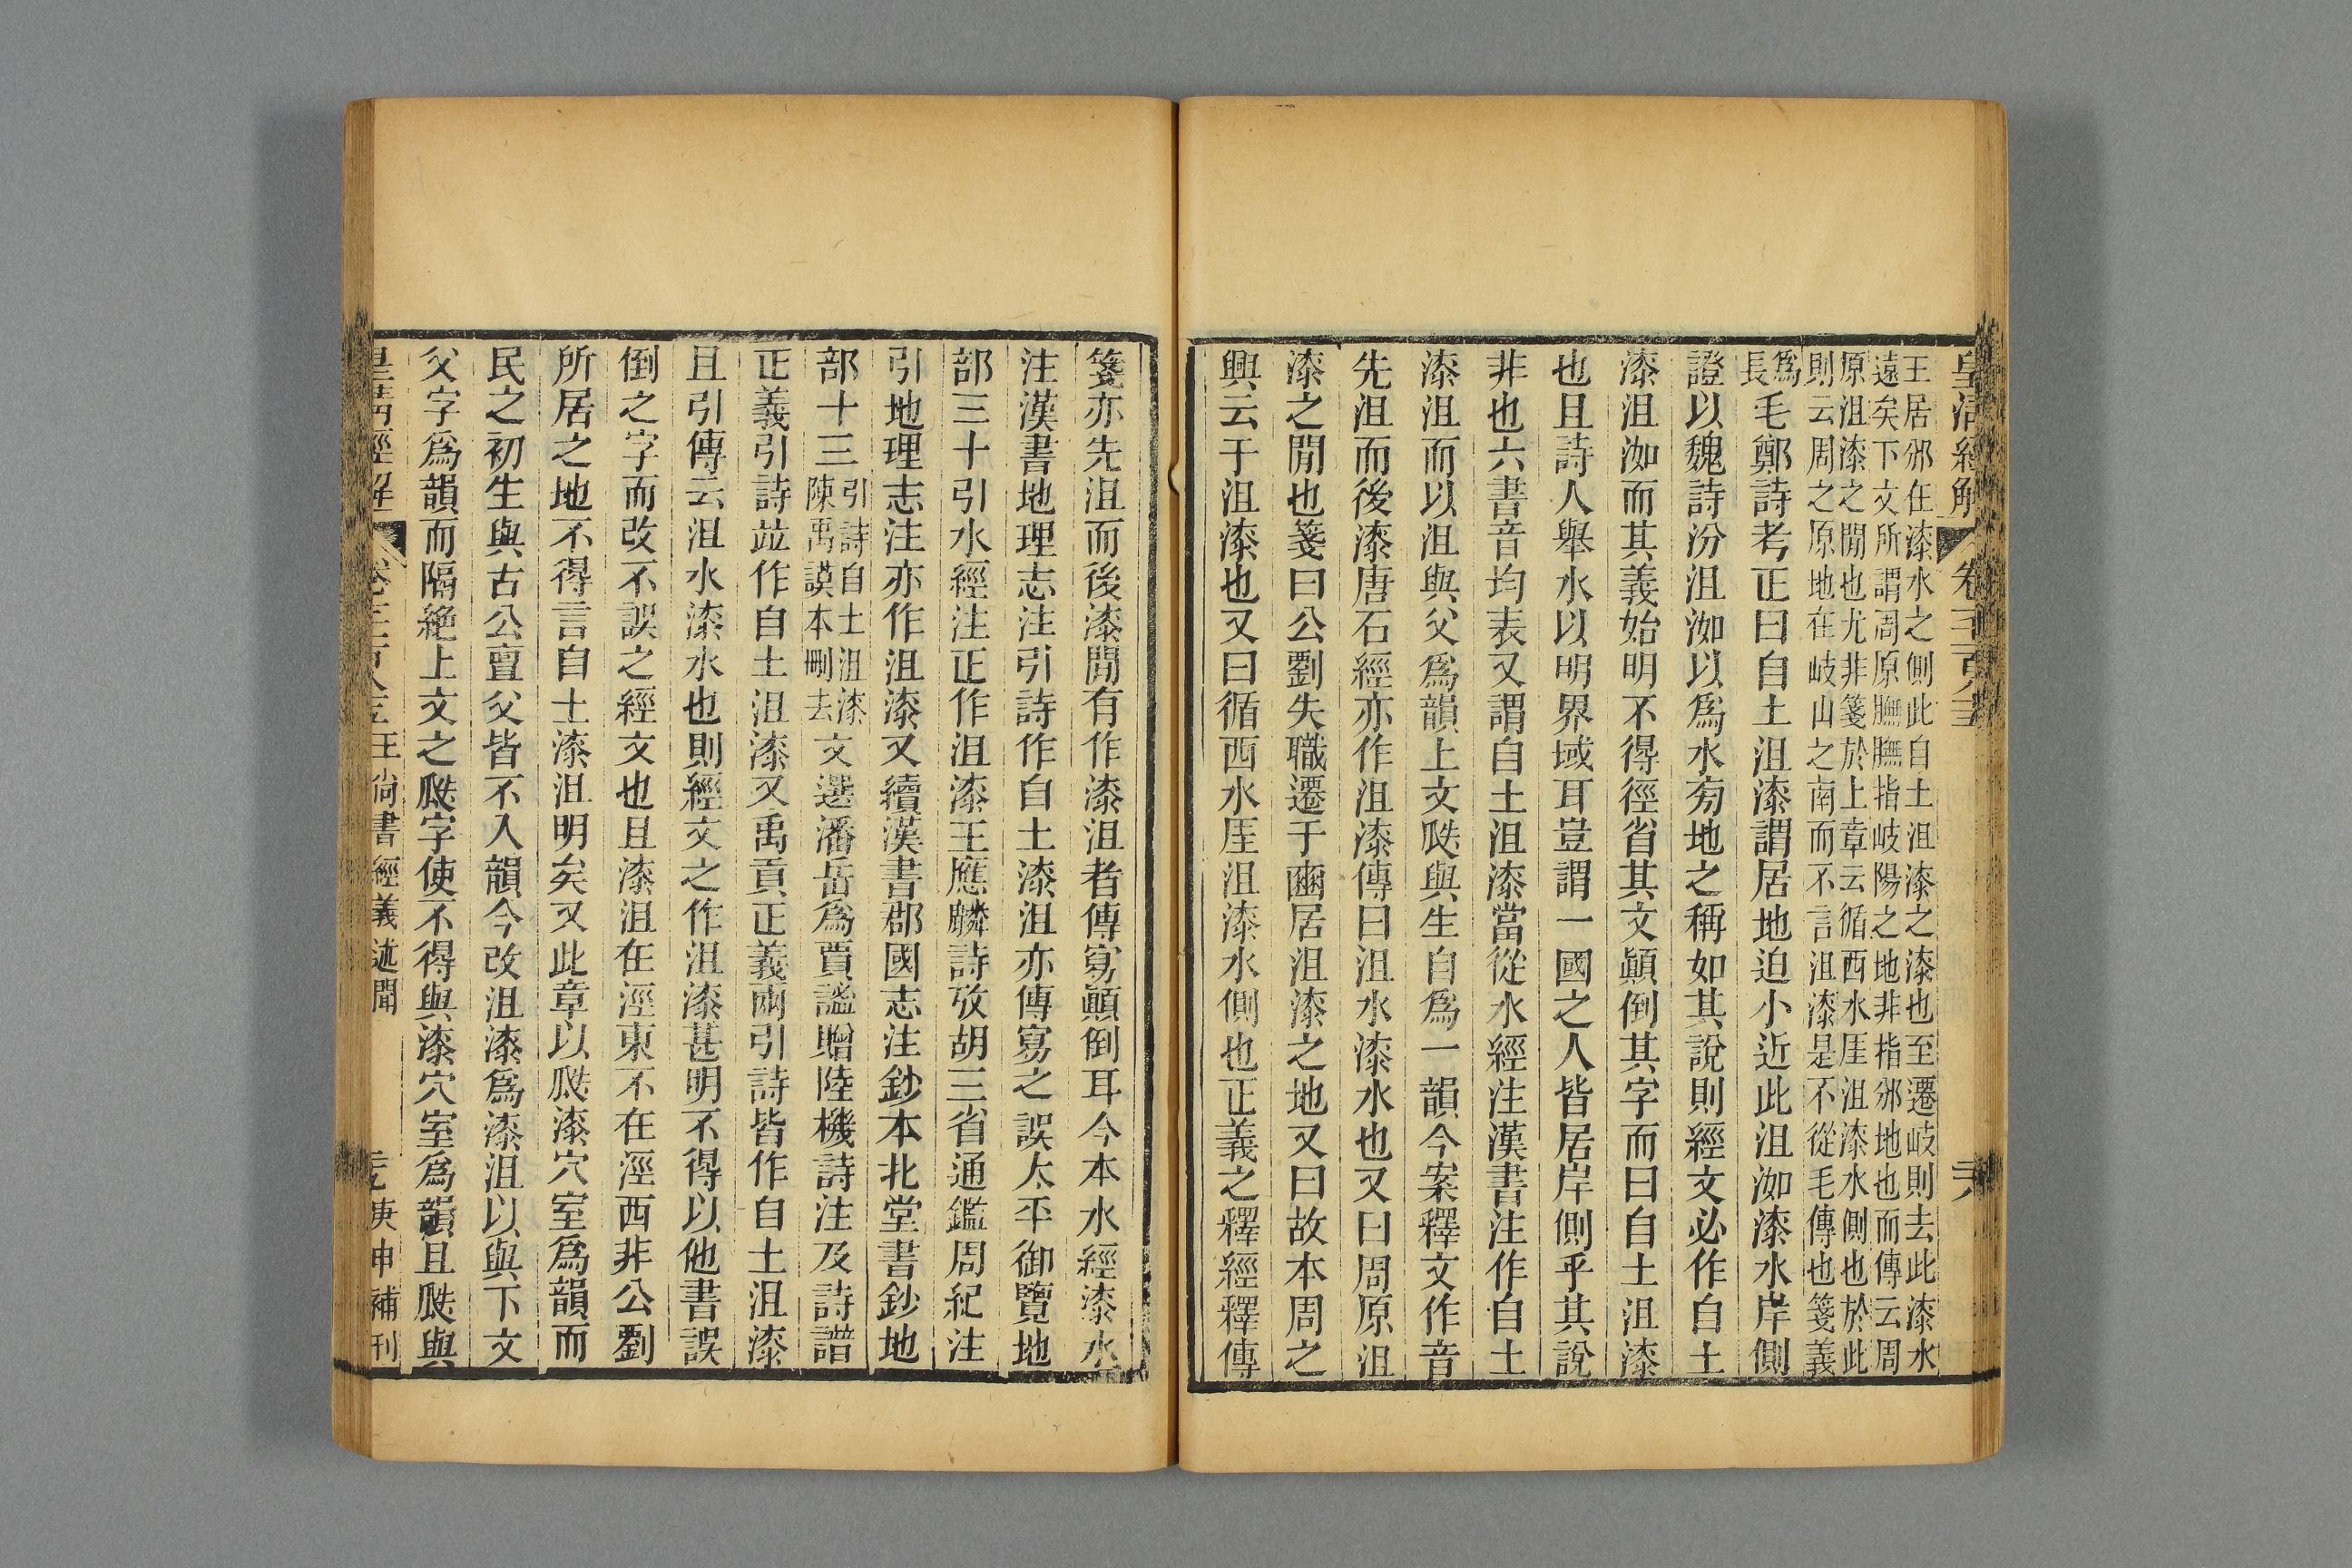 皇清經解
卷千一百八十三
王居邠在漆水之側此自土沮漆之漆也至遷岐則去此漆水
遠矣下文所謂周原膴膴指岐陽之地非指邠地也而傳云周
原沮漆之閒也尤非箋於上章云循西水厓沮漆水側也於此
則云周之原地在岐山之南而不言沮漆是不從毛傳也箋義
爲
長毛鄭詩考正曰自土沮漆謂居地迫小近此沮洳漆水岸側
證以魏詩汾沮洳以爲水旁地之稱如其說則經文必作自土
漆沮洳而其義始明不得徑省其文顚倒其字而曰自土沮漆
也且詩人舉水以明界域耳豈謂一國之人皆居岸側乎其說
非也六書音均表又謂自土沮漆當從水經注漢書注作自土
漆沮而以沮與父爲韻上文瓞與生自爲一韻今案釋文作音
先沮而後漆唐石經亦作沮漆傳曰沮水漆水也又曰周原沮
漆之閒也箋曰公劉失職遷于豳居沮漆之地又曰故本周之
興云于沮漆也又曰循西水厓沮漆水側也正義之釋經釋傳
箋亦先沮而後漆閒有作漆沮者傳寫顚倒耳今本水經漆水
注漢書地理志注引詩作自土漆沮亦傳寫之誤太平御覽地
部三十引水經注正作沮漆王應麟詩攷胡三省通鑑周紀注
引地理志注亦作沮漆又續漢書郡國志注鈔本北堂書鈔地
部十三引詩自土沮漆
陳禹謨本刪去文選潘岳爲賈謐贈陸機詩注及詩譜
正義引詩竝作自土沮漆又禹貢正義兩引詩皆作自土沮漆
且引傳云沮水漆水也則經文之作沮漆甚明不得以他書誤
倒之字而改不誤之經文也且漆沮在涇東不在涇西非公劉
所居之地不得言自土漆沮明矣又此章以瓞漆穴室爲韻而
民之初生與古公亶父皆不入韻今改沮漆爲漆沮以與下文
父字爲韻而隔絶上文之瓞字使不得與漆穴室爲韻且瓞與
皇清經解
王尙書經義述聞
庚申補刊